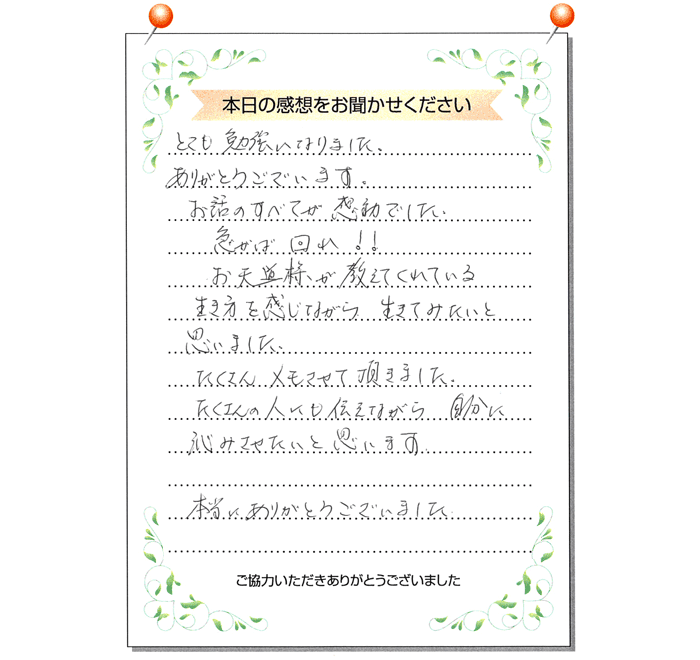 本日の感想をお聞かせください
とても勉強になりました。
ありがとうございます。
お話のすべてが感動でした。
急がば回れ!!
お天道様が教えてくれている
生き方を感じながら生きてみたいと
思いました。
たくさんメモさせて頂きました。
たくさんの人にも伝えながら自分に
沁みさせたいと思います
本当にありがとうございました
ご協力いただきありがとうございました